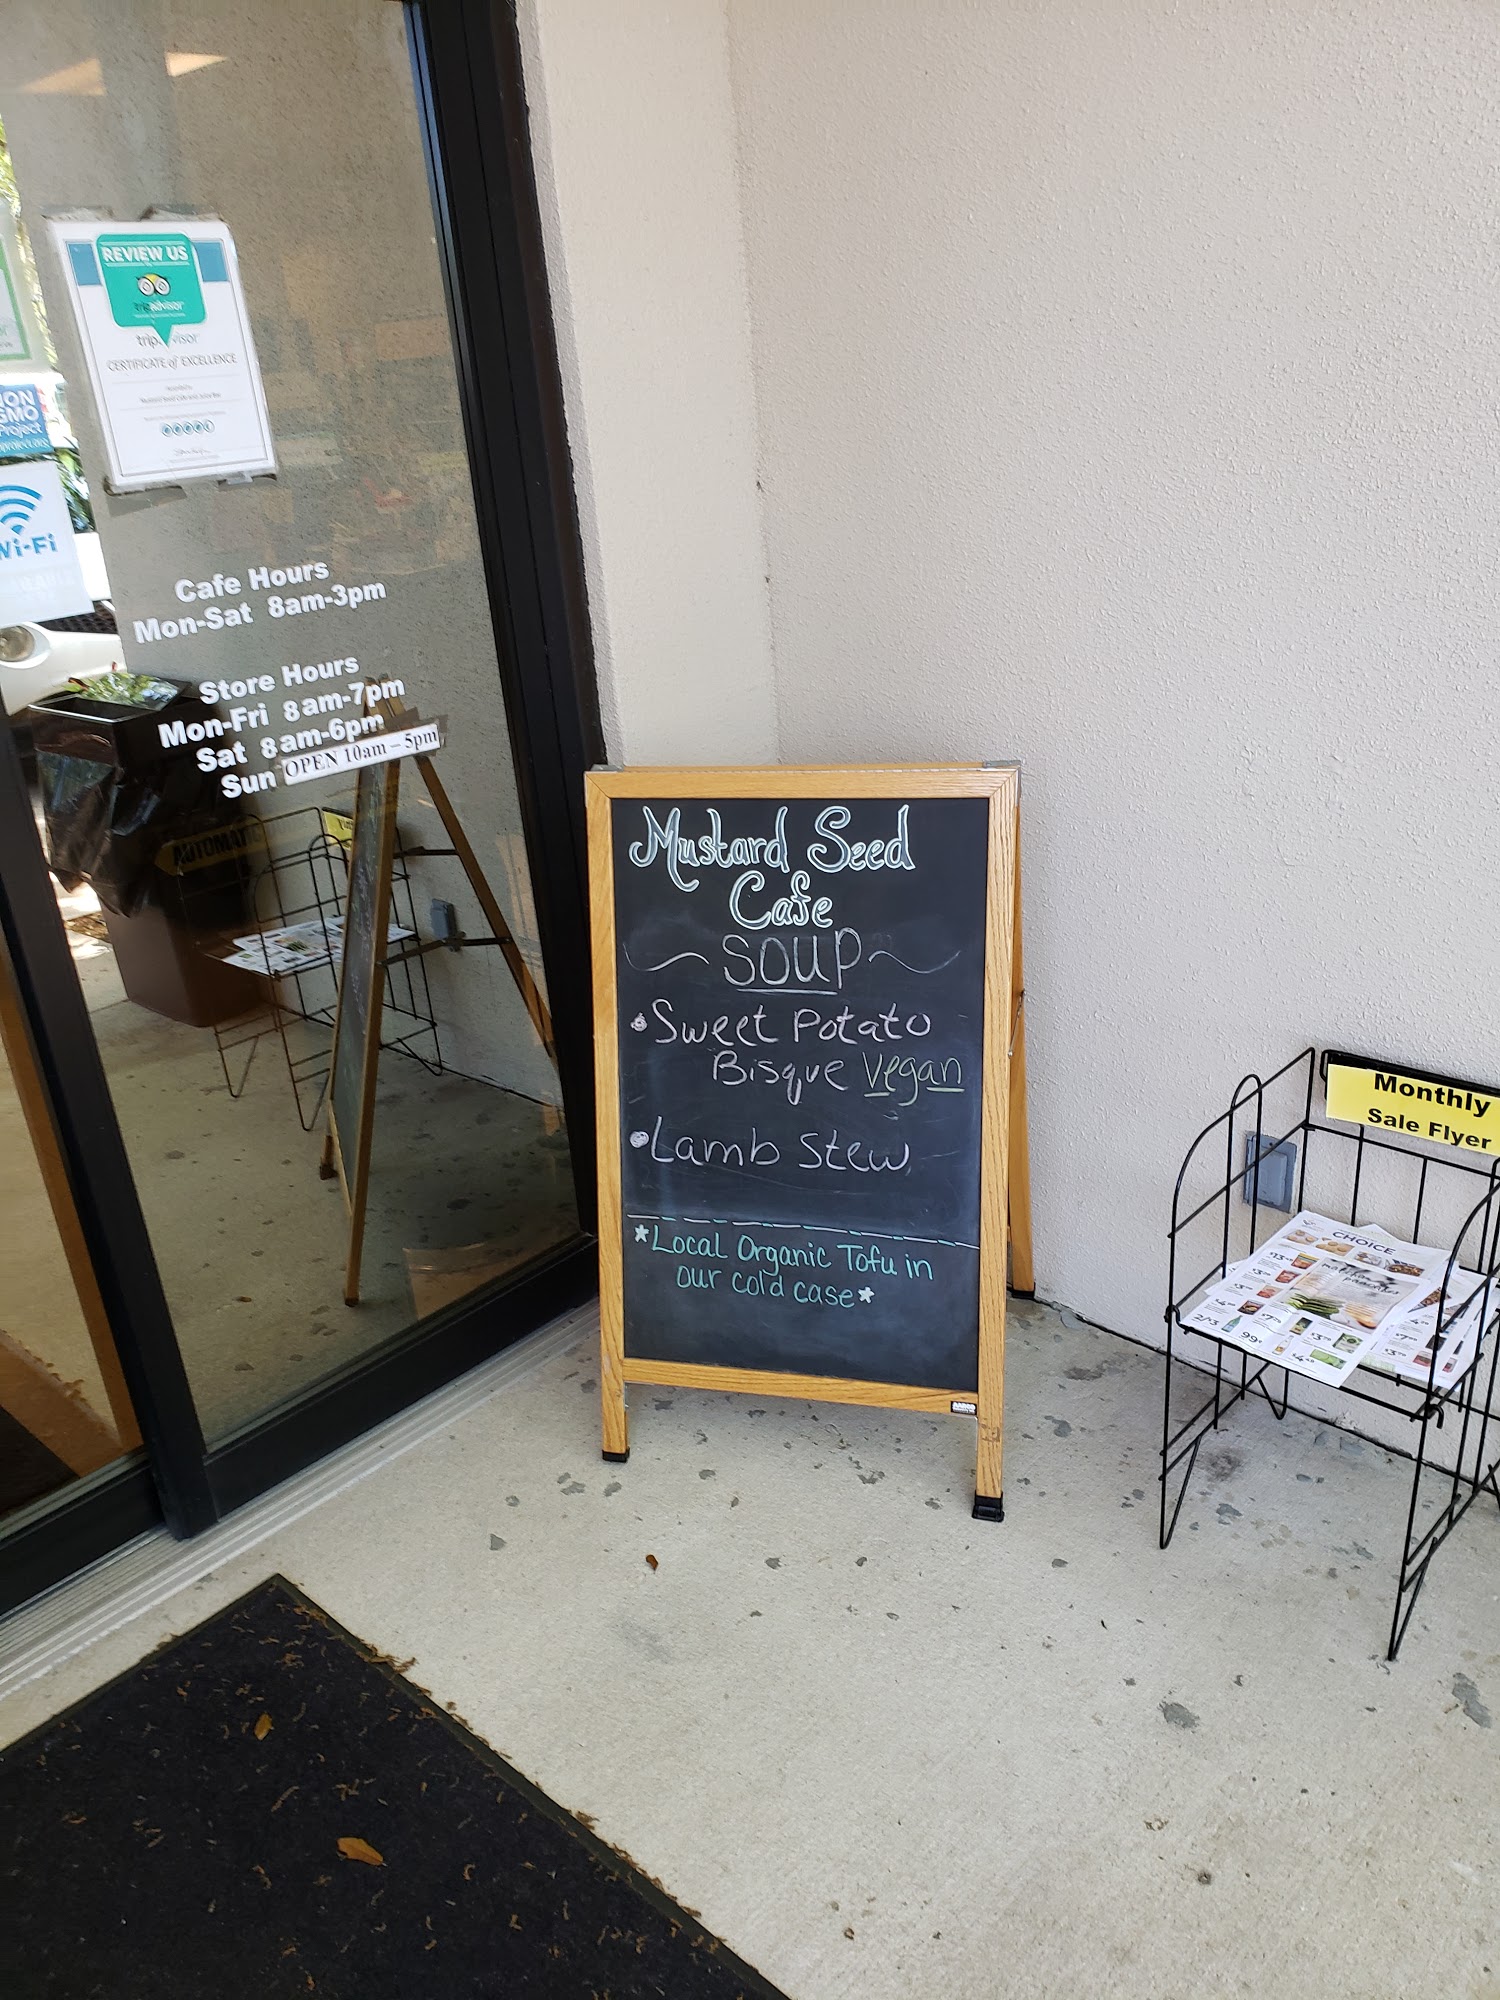 REVIEW US
tripadvisor
CERTIFICATE of EXCELLENCE
ION
GMO
Project
Wi-Fi
Cafe Hours
Mon-Sat 8am-3pm
Store Hours
Mon-Fri 8am-7pm
Sat 8am-6pm
Sun OPEN 10am – 5pm
AUTOMATI
Mustard Seed
Cafe
~ SOUP ~
• Sweet Potato
Bisque Vegan
• Lamb Stew
*Local Organic Tofu in
our cold case*
Monthly
Sale Flyer
CHOICE
2/$3
99¢